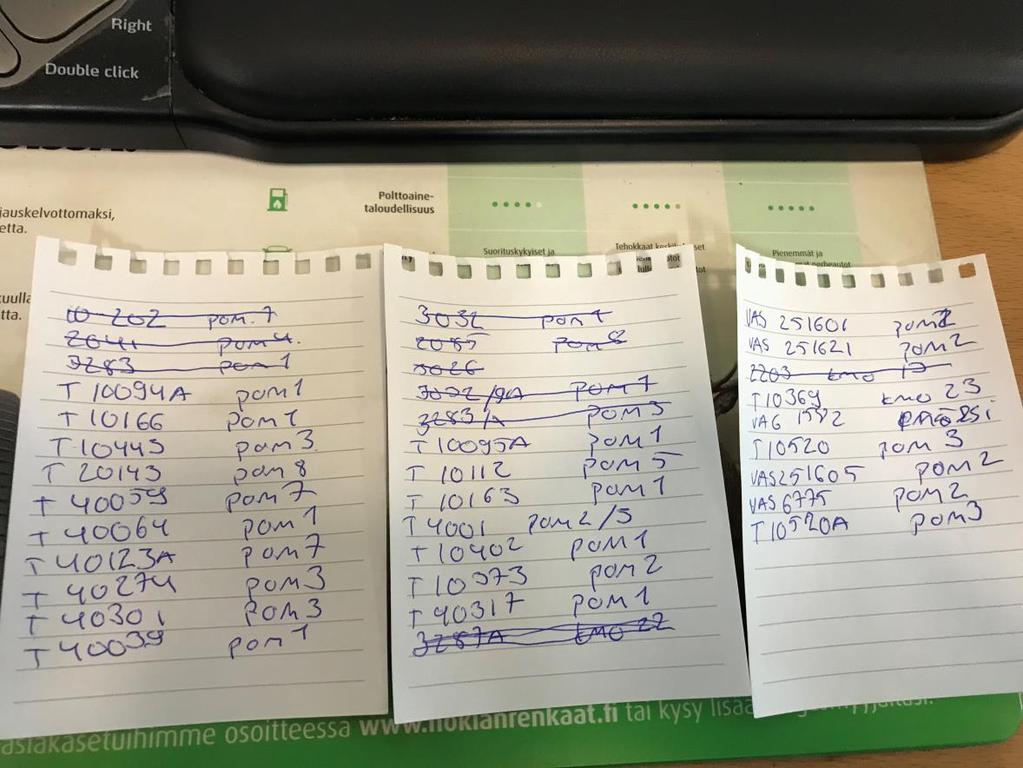 Right
Double click
jauskelvottomaksi,
etta.
kuulla
tta.
Polttoaine-
taloudellisuus
Suorituskykyiset ja
Tehokkaat
Pienemmät ja
10 202 pom. 7
2041 pom 4.
3283 pom 1
T 10094A pom 1
T 10166 pom 1
T 10445 pom 3
T 20143 pom 8
T 40059 pom 7
T 40064 pom 1
T 40123A pom 7
T 40274 pom 3
T 40301 pom 3
T 40039 pom 1
3032 pom 1
2085 pom 8
3026
pom 7
3283/A pom 5
T 10095A pom 1
T 10112 pom 5
T 10163 pom 1
T 4001 pom 2/5
T 10402 pom 1
T 10373 pom 2
T 40317 pom 1
3287A kmo 22
VAS 251601 pom 2
VAS 251621 pom 2
2203 kmo 17
T 10369 kmo 23
VAG
T 10520 pom 3
VAS 251605 pom 2
VAS 6775 pom 2
T 10520A pom 3
asiakasetuihimme osoitteessa www.nokianrenkaat.fi tai kysy lisää